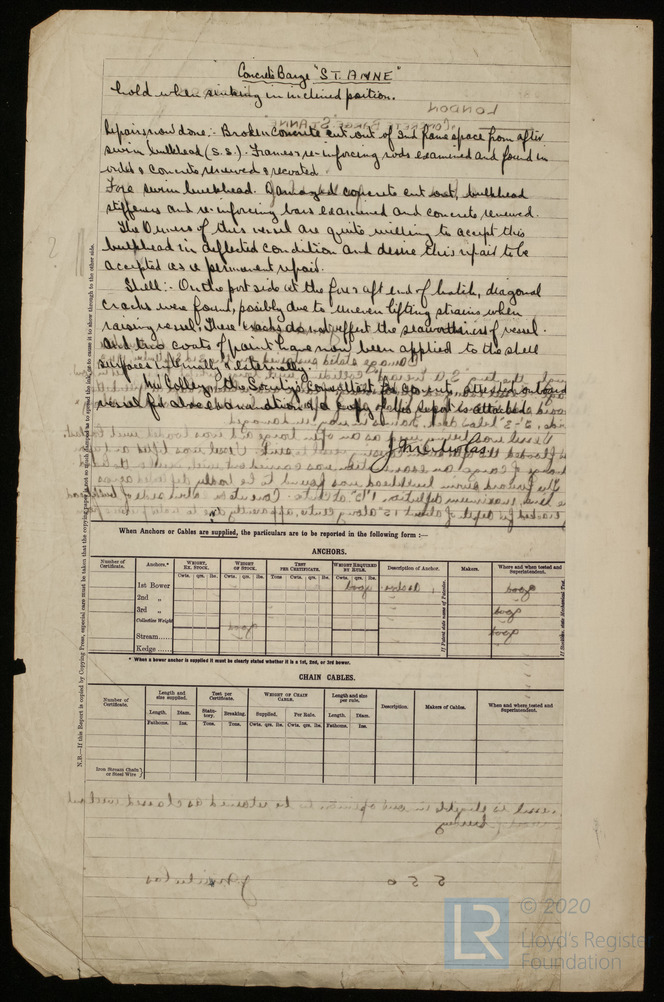 Concrete Barge "ST. ANNE"
hold when sinking in inclined position.
Repairs now done:- Broken concrete cut out of 2nd frame space from after
swim bulkhead (S.S.). Frames & re-inforcing rods examined and found in
order & concrete renewed & recoated.
Fore swim bulkhead. Damaged concrete cut out, bulkhead
stiffeners and re-inforcing bars examined and concrete renewed.
The Owners of this vessel are quite willing to accept this
bulkhead in deflected condition and desire this repair to be
accepted as a permanent repair.
Shell:- On the port side at the fore & aft end of hatch, diagonal
cracks were found, possibly due to uneven lifting strains when
raising vessel. These cracks do not effect the seaworthiness of vessel.
and two coats of paint have now been applied to the shell
surfaces internally & externally.
vessel for above examination & a copy of his report is attached.
J. Nicholas
N.B.—If this Report is copied by Copying Press, especial care must be taken that the copying paper is not so much damped as to spread the ink, or to cause it to show through to the other side.
When Anchors or Cables are supplied, the particulars are to be reported in the following form :—
ANCHORS.
Number of Certificate. Anchors.* Weight, Ex. Stock. Weight of Stock. Test per Certificate. Weight Required by Rule. Description of Anchor. Makers. Where and when tested and Superintendent.
Cwts. qrs. lbs. Cwts. qrs. lbs. Tons Cwts. qrs. lbs. Cwts. qrs. lbs.
1st Bower
2nd „
3rd „
Collective Weight
Stream......
Kedge ......
* When a bower anchor is supplied it must be clearly stated whether it is a 1st, 2nd, or 3rd bower.
CHAIN CABLES.
Number of Certificate. Length and size supplied. Test per Certificate. Weight of Chain Cable. Length and size per rule. Description. Makers of Cables. When and where tested and Superintendent.
Length. Diam. Statutory. Breaking. Supplied. Per Rule. Length. Diam.
Fathoms. Ins. Tons. Tons. Cwts. qrs. lbs. Cwts. qrs. lbs. Fathoms. Ins.
Iron Stream Chain or Steel Wire }
LR © 2020
Lloyd's Register
Foundation